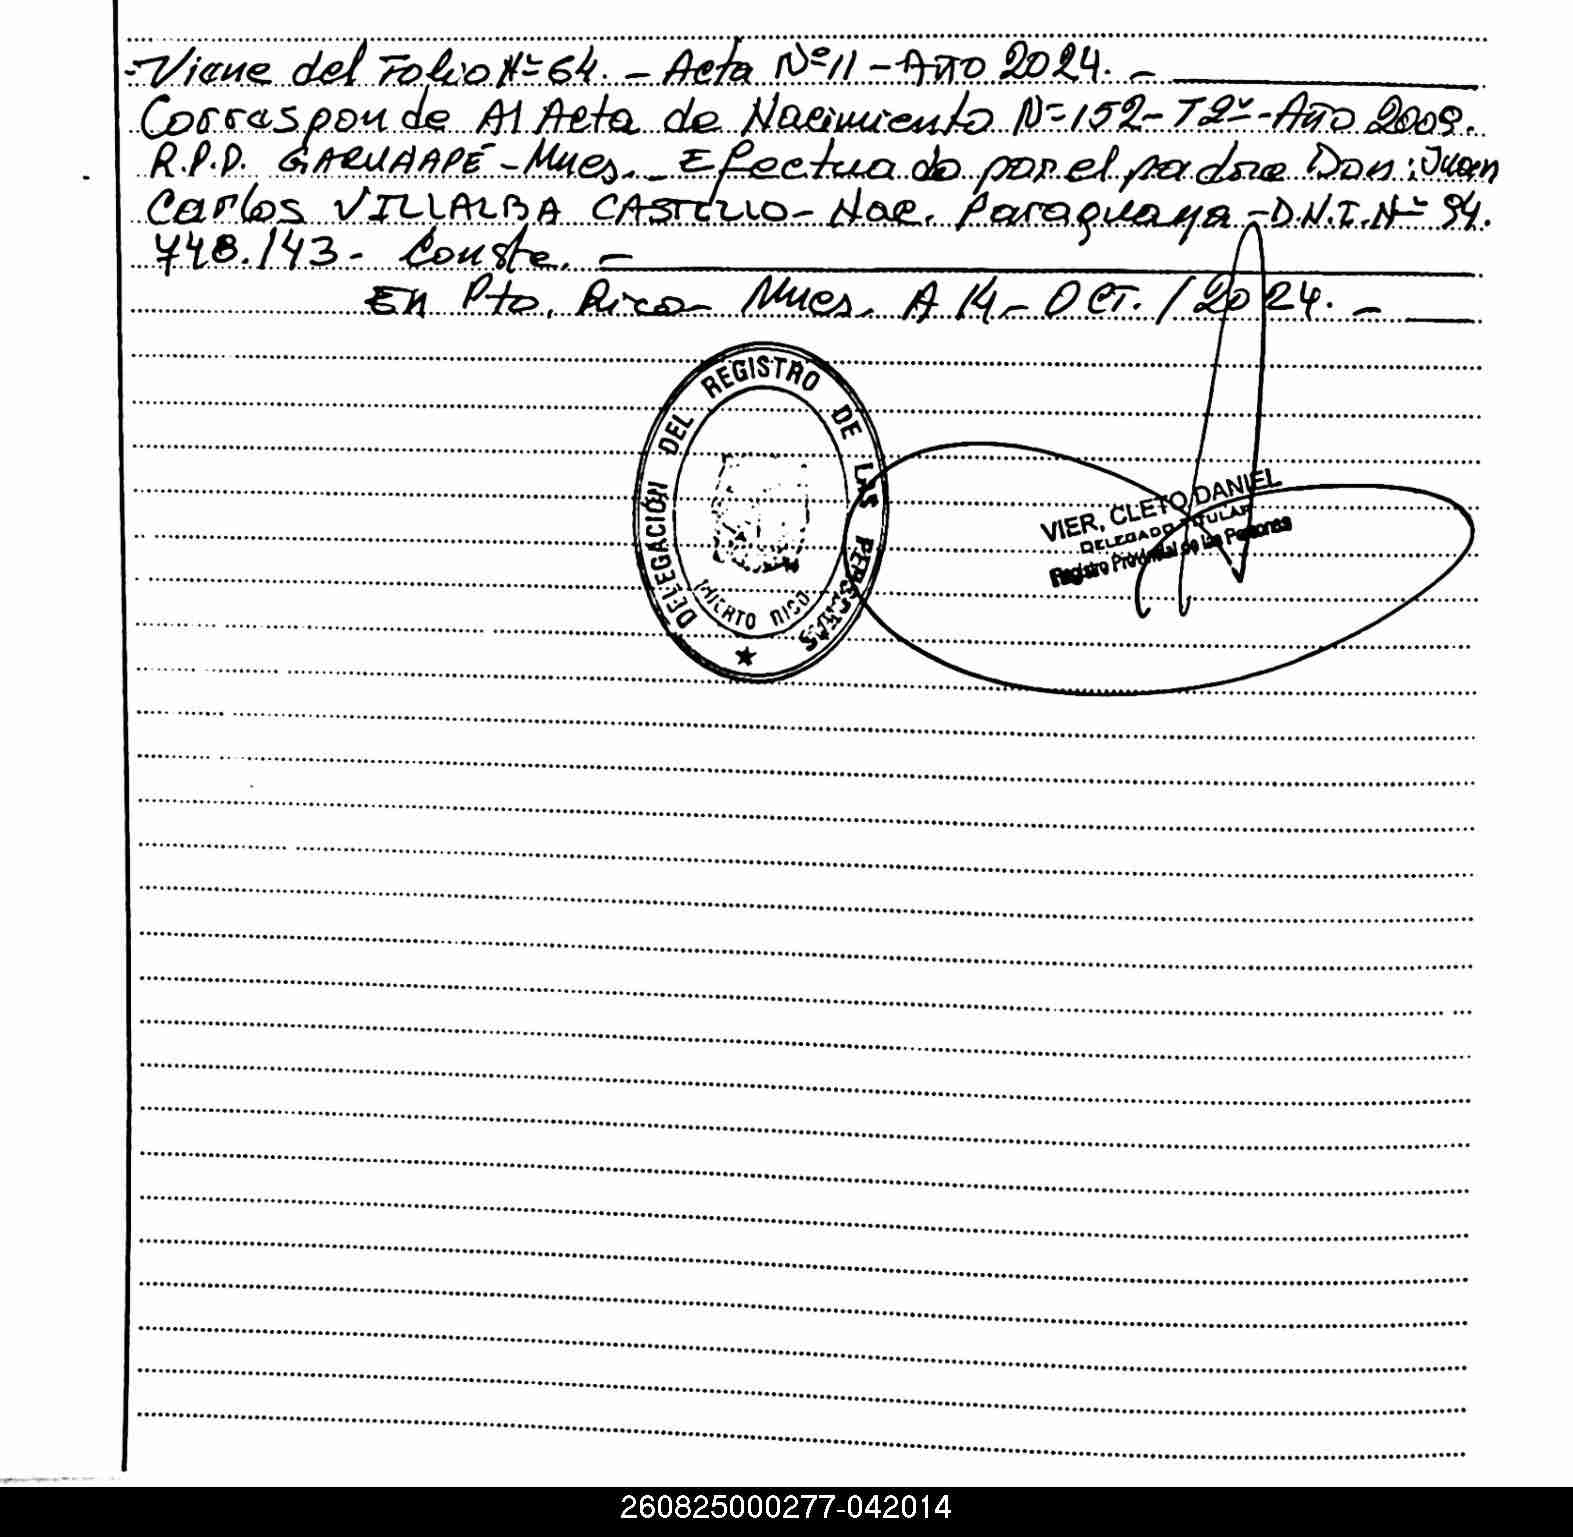 -Viene del Folio Nº 64. - Acta Nº 11 - Año 2024. -
Corresponde Al Acta de Nacimiento Nº 152 - T2º - Año 2009.
R.P.P. GARUHAPÉ - Mnes. - Efectuado por el padre Don: Juan
Carlos VILLALBA CASTILLO - Nac. Paraguaya - D.N.I. Nº 94.
748.143 - Conste. -
En Pto. Rico - Mnes. A 14 - OCT. / 2024. -
DELEGACIÓN DEL REGISTRO DE LAS PERSONAS
PUERTO RICO
VIER, CLETO DANIEL
DELEGADO TITULAR
Registro Provincial de las Personas
260825000277-042014